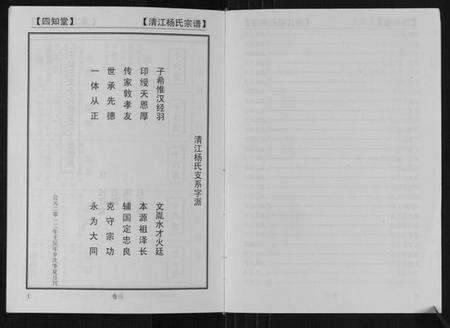 【四知堂】
【清江杨氏宗谱】
清江杨氏支系字派
子希惟汉经羽
文胤水才火廷
印绶天恩厚
本源祖泽长
传家敦孝友
辅国定忠良
世承先德
克守宗功
一体从正
永为大同
1